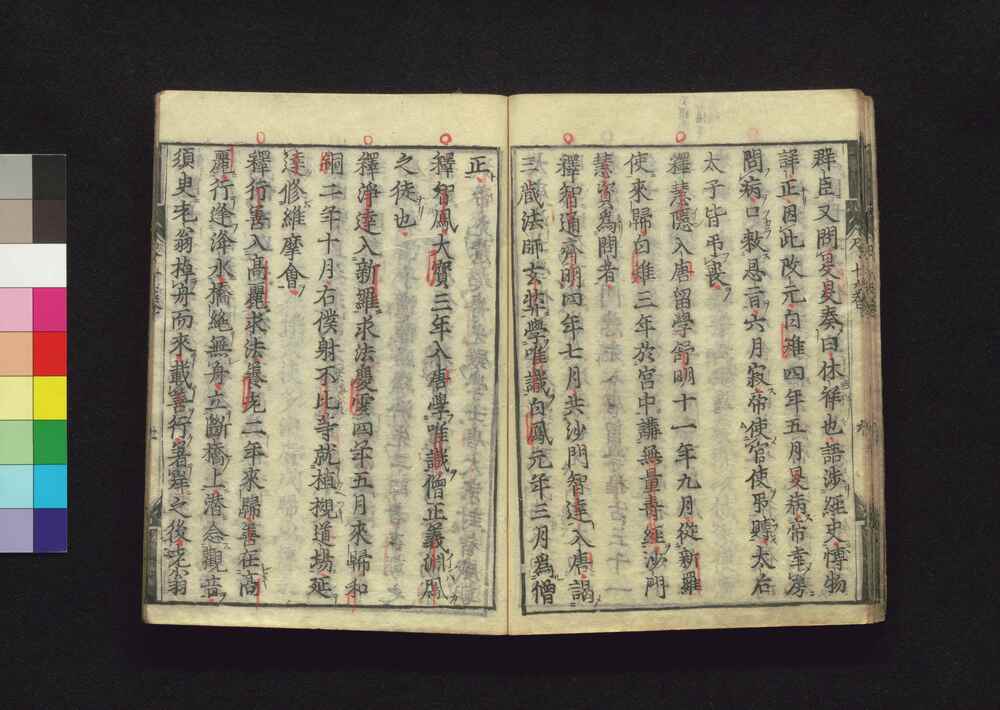 群臣又問旻旻奏曰休祥也語涉經史博物
詳正因此改元白雉四年五月旻病帝幸房
問病口敕恩言六月寂帝使宦使弔賻太后
太子皆弔喪
釋慧隱入唐留學舒明十一年九月從新羅
使來歸白雉三年於宮中講無量壽經沙門
慧資為問者
釋智通齊明四年七月共沙門智達入唐謁
三藏法師玄奘學唯識白鳳元年三月為僧
正
釋智鳳大寶三年入唐學唯識僧正義淵鳳
之徒也
釋淨達入新羅求法慶雲四年五月來歸和
銅二年十月右僕射不比等就植槻道場延
達修維摩會
釋行善入高麗求法養老二年來歸善在高
麗行逢洚水橋絕無舟立斷橋上潛念觀音
須臾老翁掉舟而來載善行著岸之後老翁